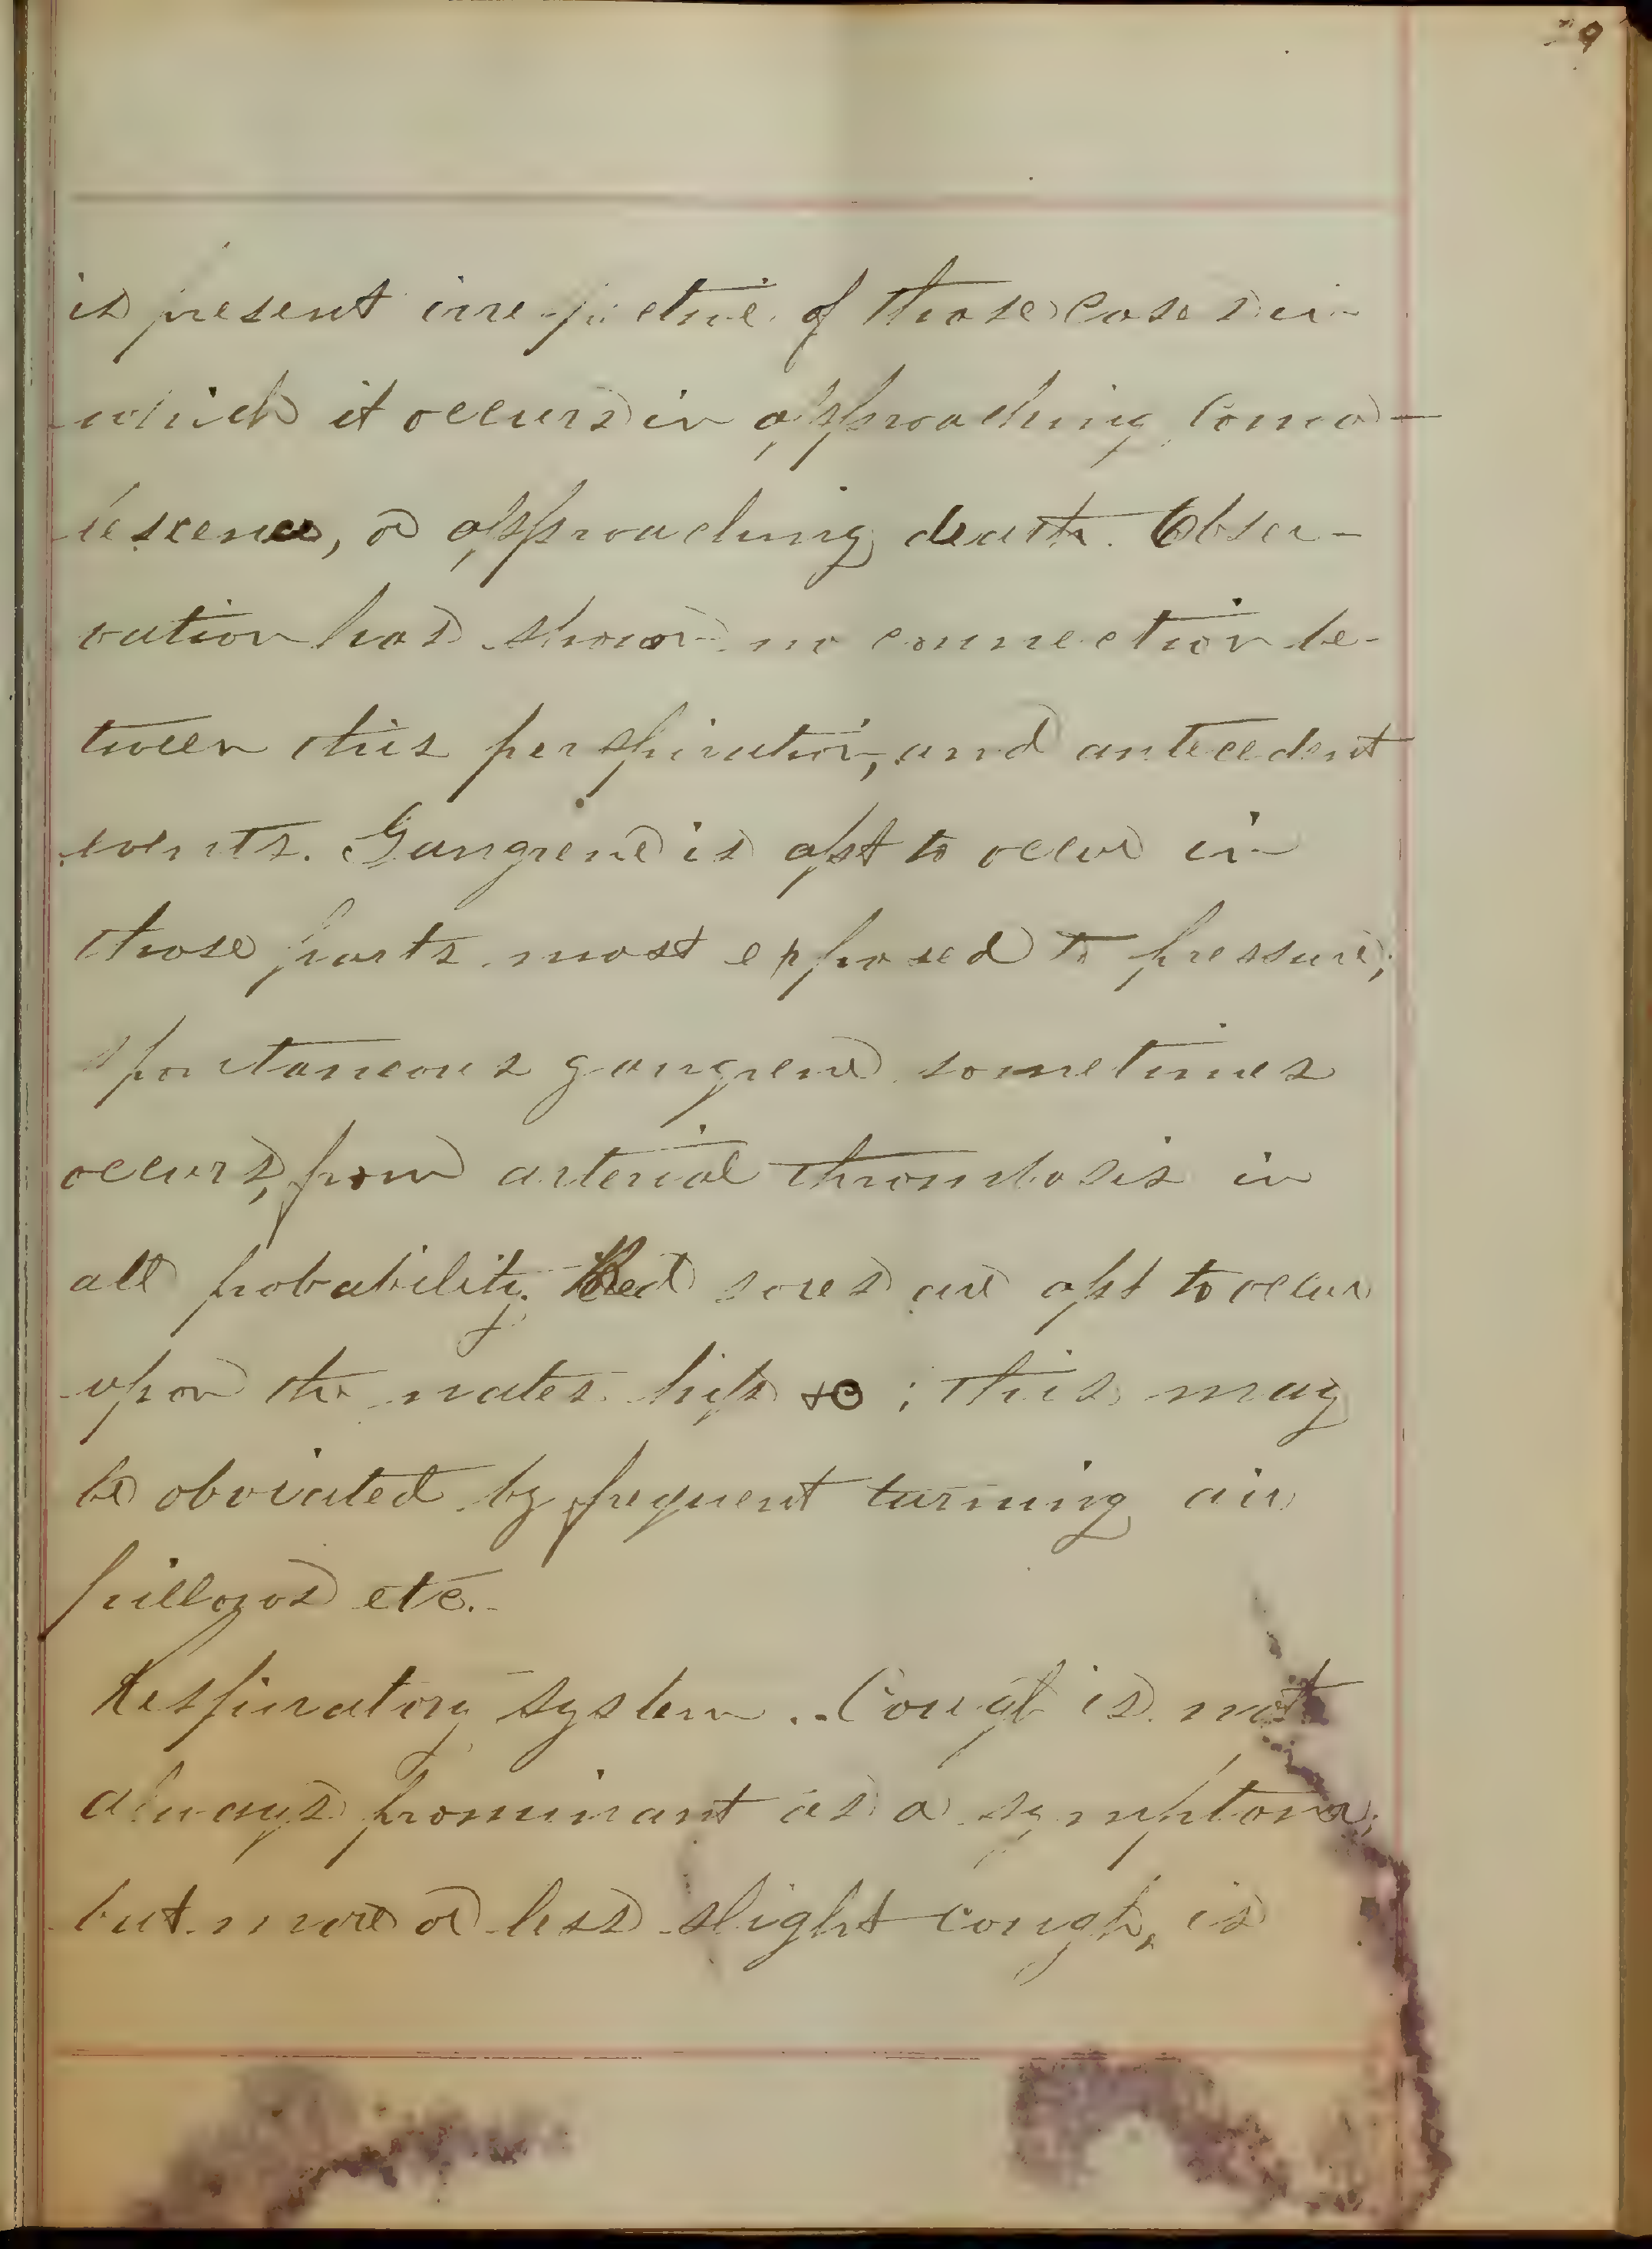 is present irrespective of those cases in
which it occurs in approaching conva-
lescence, or approaching death. Obser-
vation has shown no connection be-
tween this perspiration, and antecedent
events. Gangrene is apt to occur in
those parts most exposed to pressure;
spontaneous gangrene sometimes
occurs, from arterial thrombosis in
all probability. Bed sores are apt to occur
upon the nates hips &c; this may
be obviated by frequent turning air
pillows etc.
Respiratory system.. Cough is not
always prominant as a symptom;
but more or less slight cough, is